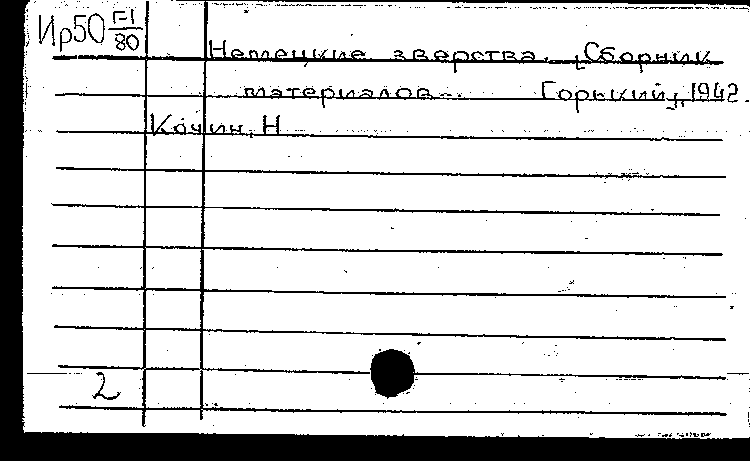 Ир50 Г-1/80
Немецкие зверства. [Сборник
материалов. Горький], 1942.
Кочин, Н
2